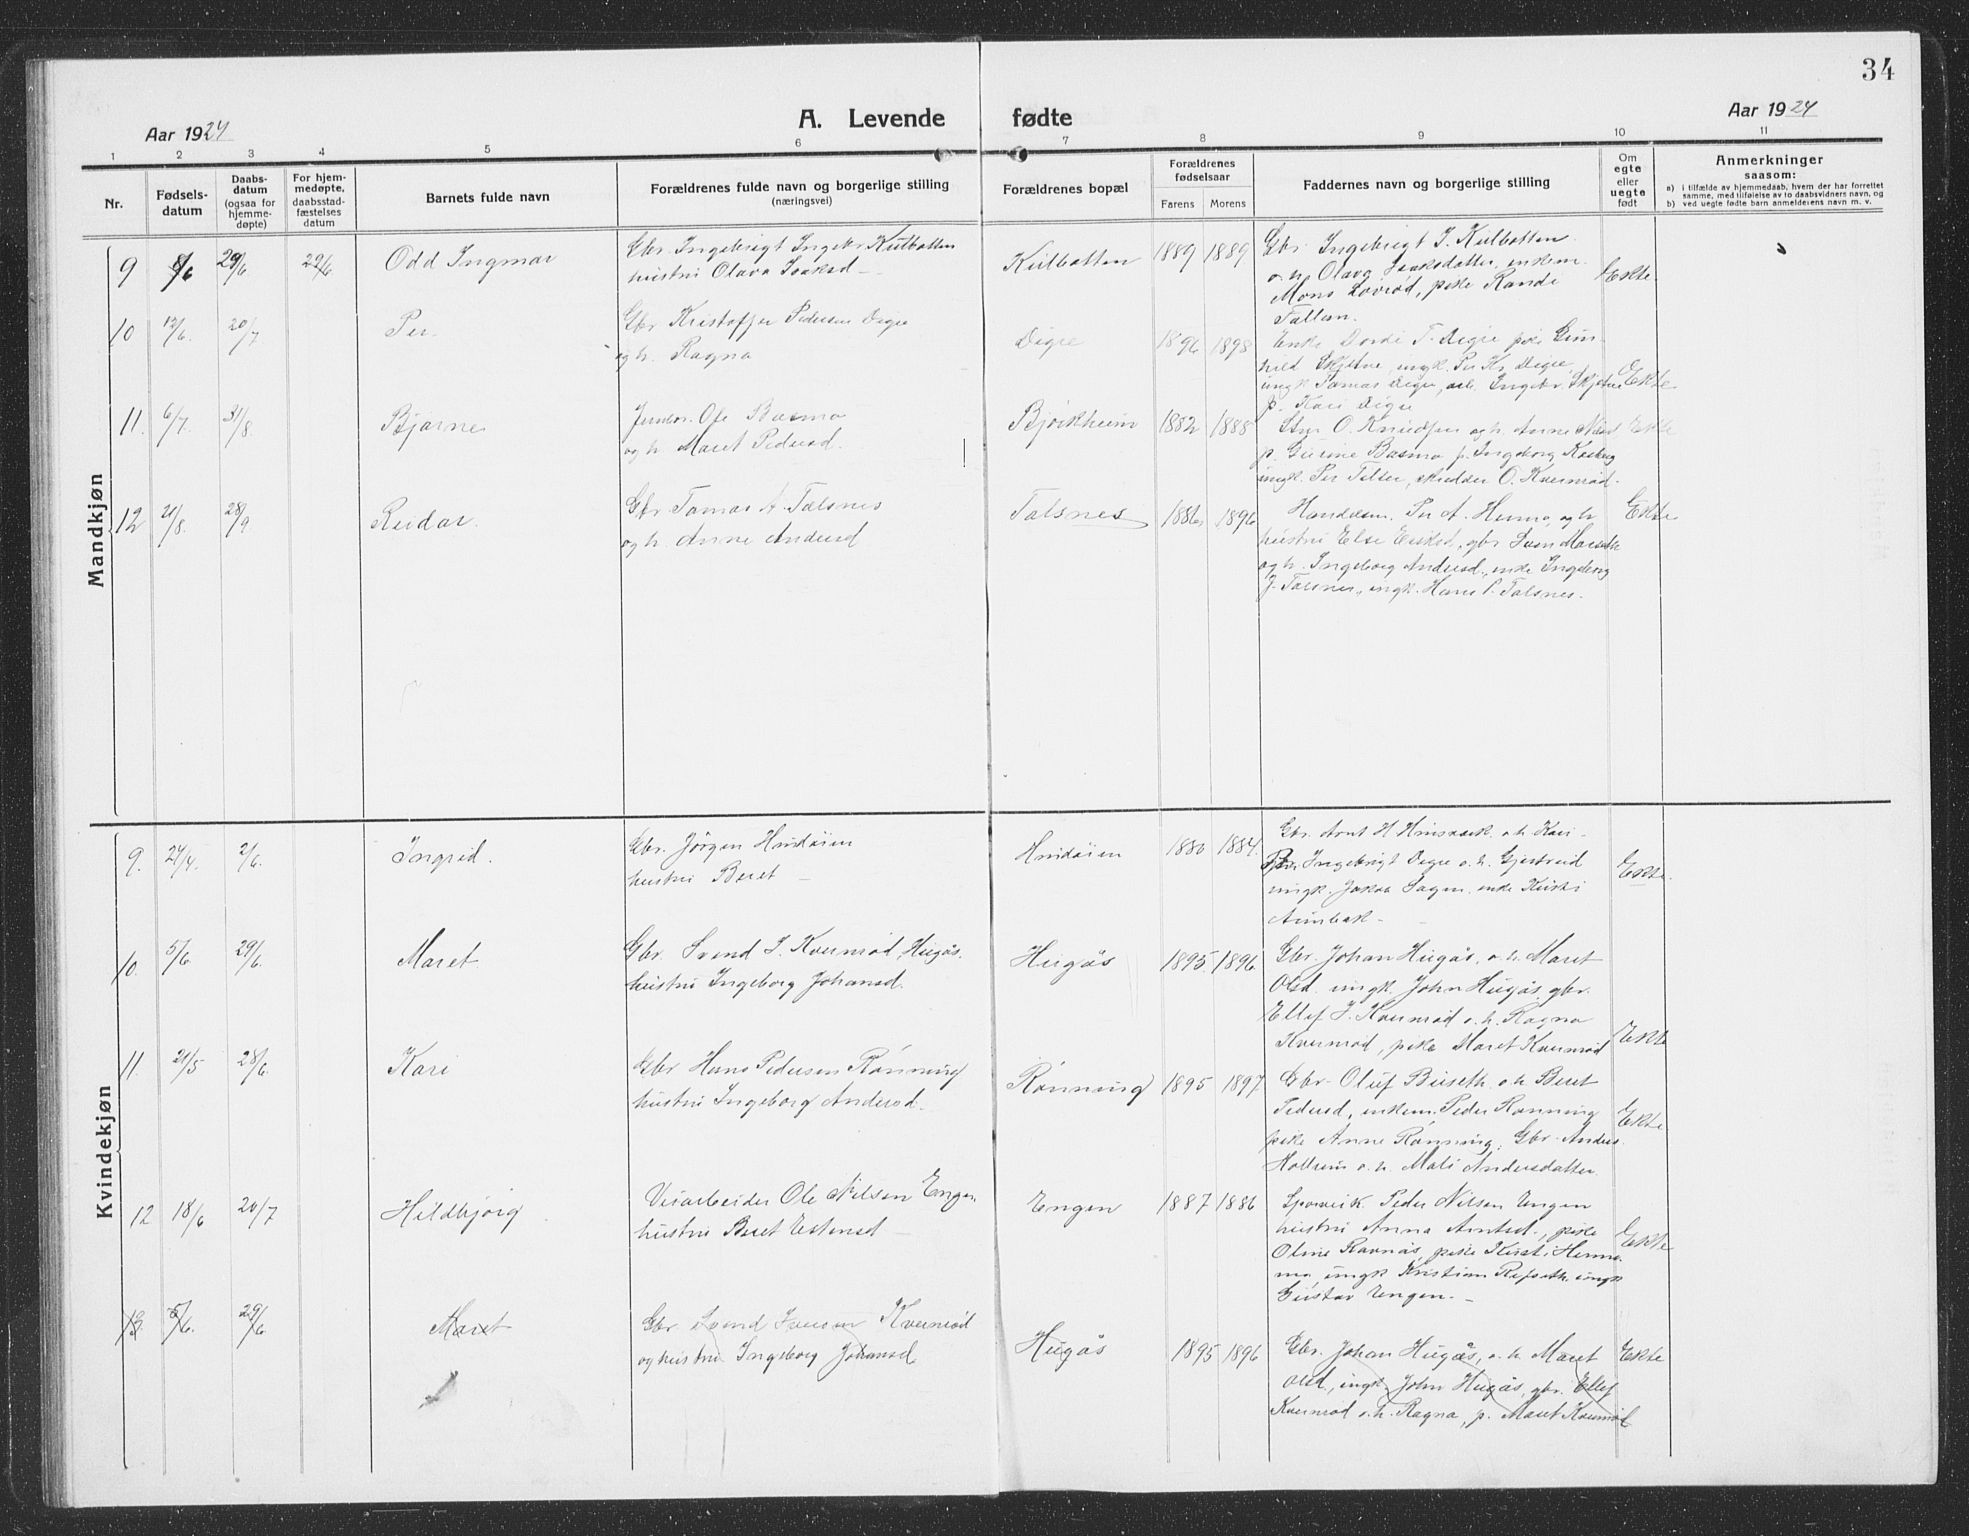 34
Aar 1924
A. Levende fødte
Aar 1924
1 2 3 4 5 6 7 8 9 10 11
Nr.
Fødsels-
datum
Daabs-
datum
(ogsaa for
hjemme-
døpte)
For hjem-
medøpte,
daabsstad-
fæstelses
datum
Barnets fulde navn
Forældrenes fulde navn og borgerlige stilling
(næringsvei)
Forældrenes bopæl
Forældrenes
fødselsaar
Farens Morens
Faddernes navn og borgerlige stilling
Om
egte
eller
uegte
født
Anmerkninger
saasom:
a) i tilfælde av hjemmedaab, hvem der har forrettet
samme, med tilføielse av to daabsvidners navn, og
b) ved uegte fødte barn anmelderens navn m. v.
Mandkjøn
9 8/6 29/6 29/6 Odd Ingmar
Gbr. Ingebrigt Ingebr. Kulbotten
hustru Olava Isaksd –
Kulbotten 1889 1889
Gbr. Ingebrigt I. Kulbotten
o. h. Olava Isaksdatter, enkem.
Mons Lovrød, pike Randi
Tallem.
Ekte
10 12/6 20/7 Per
Gbr Kristoffer Pedersen Digre
og h. Ragna
Digre 1896 1898
Enke Dordi T. Digre pike Gun-
hild Skjetne, ungk. Per Kr. Digre,
ungk Tomas Digre, arb. Ingebr. Skjetne
p. Kari Digre
Ekte
11. 6/7. 31/8. Bjarne
Ole Basmo
og h. Maret Pedersd.
Bjørkheim 1882 1888
O. Knudsen og h. Anne
p. Gurine Basmo p. Ingeborg
ungk. Per skredder O. Kvernrød.
Ekte
12 21/8. 28/9 Reidar.
Gbr Tomas A. Talsnes
og h. Anne Andersd
Talsnes 1886 1896
Per A. Hermo, og h
hustru Else gbr Sven
og h. Ingeborg Andersd., enke Ingeborg
J. Talsnes, ungk. Hans P. Talsnes.
Ekte
Kvindekjøn
9. 24/4. 2/6. Ingrid.
Gbr. Jørgen Hindøien
hustru Beret –
Hindøien 1880 1884.
Gbr. Arnt H. o. h. Kari –
Ingebrigt Digre o. h. Gjertrud
ungk. Jakob Sagen, enke Kirsti
Aunbak –
Ekte.
10. 5/6 29/6. Maret
Gbr. Svend I. Kvernrød Hugås.
hustru Ingeborg Johansd.
Hugås 1895 1896
Gbr. Johan Hugås, o. h. Maret
Olsd. ungk. John Hugås, gbr.
Ellef I. Kvernrød o. h. Ragna
Kvernrød, pike Maret Kvernrød
Ekte
11. 21/5 28/6. Kari
Gbr Hans Pedersen Rønning
hustru Ingeborg Andersd.
Rønning 1895 1897
Gbr. Oluf Buseth o. h. Beret
Pedersd, enkem. Peder Rønning
pike Anne Rønning, Gbr. Anders
o. h. Mali Andersdatter
Ekte
12 18/6 20/7 Hildbjørg
Veiarbeider Ole Nilsen Engen
hustru Beret Estensd –
Engen 1887 1886
Peder Nilsen Engen
hustru Anna Arntsd., pike
Oline Ravnås, pike Kirsti
ungk Kristian Refseth ungk
Gustav Engen. –
Ekte
13. 5/6. 29/6. Maret
Gbr Svend Iversen Kvernrød
og hustru Ingeborg Johansd.
Hugås 1895 1896
Gbr. Johan Hugås, o. h. Maret
Olsd., ungk. John Hugås, gbr. Ellef
Kvernrød o. h. Ragna, p. Maret Kvernrød
Ekte